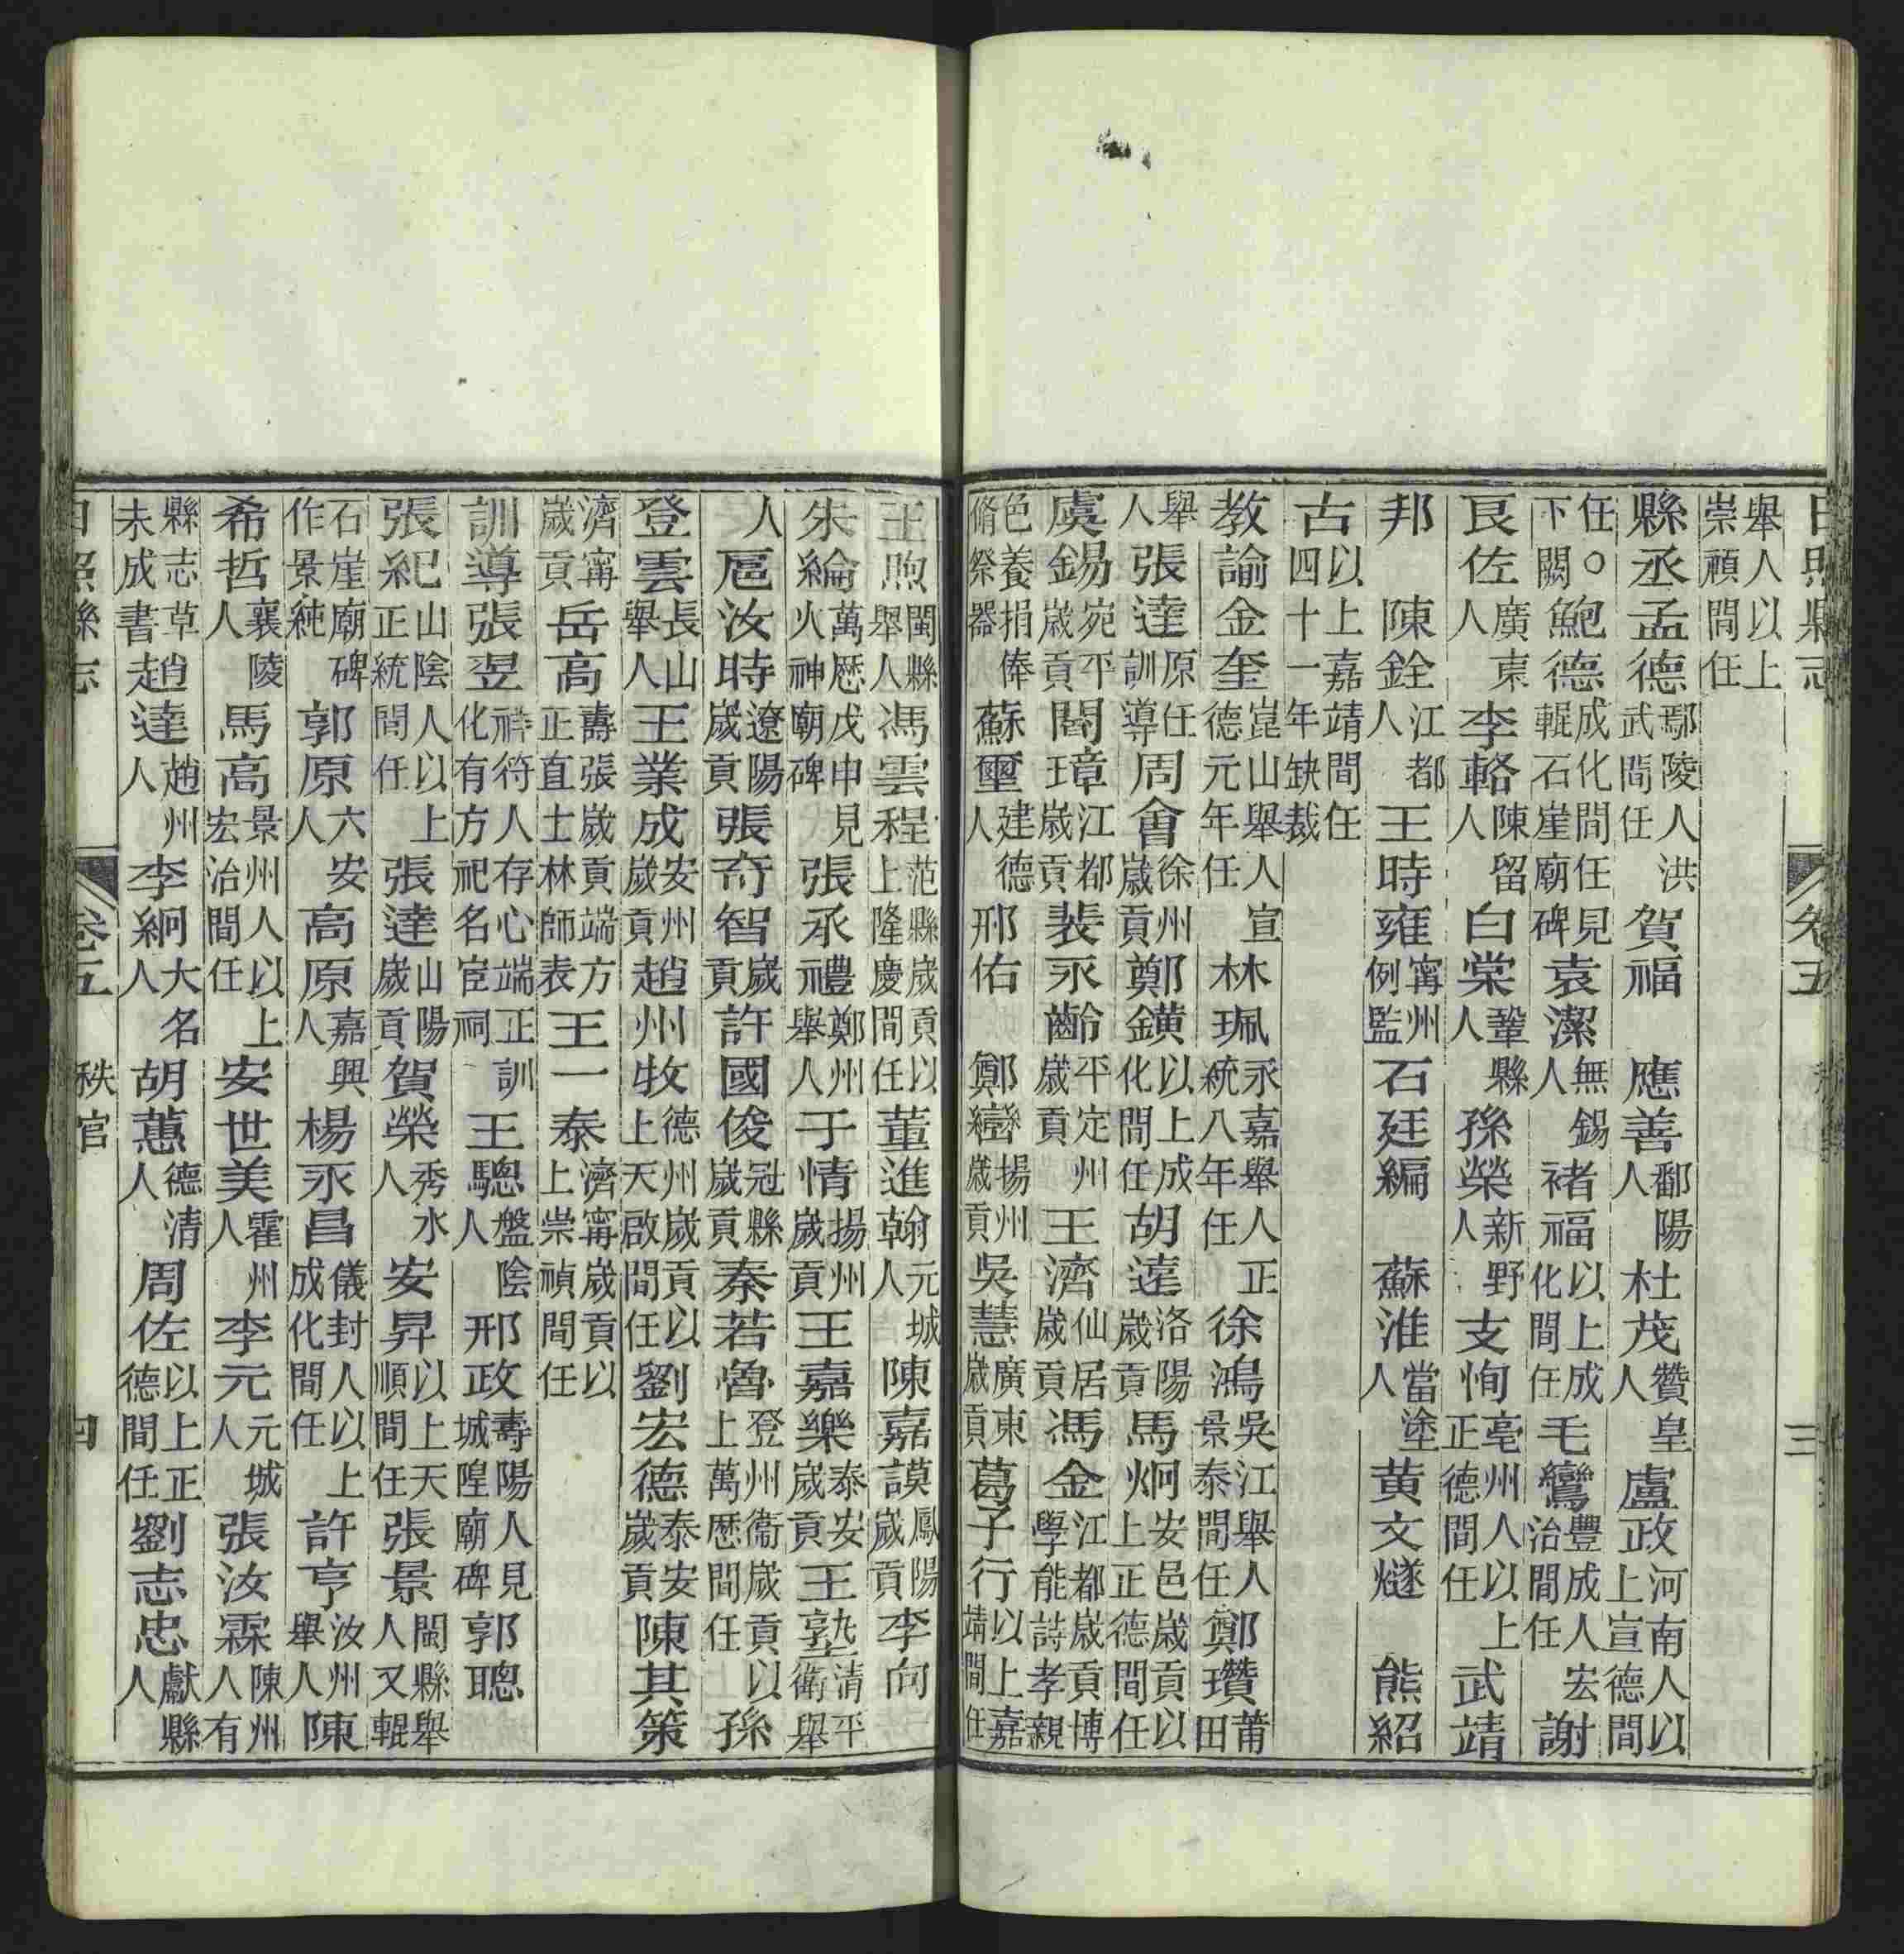 日照縣志 卷五 三
舉人以上崇禎間任
縣丞孟德鄢陵人洪武間任賀福 應善鄱陽人杜茂贊皇人盧政河南人以上宣德間
任○下闕鮑德成化間任見輥石崖廟碑袁潔無錫人褚福以上成化間任毛鸞豐成人宏治間任謝
良佐廣東人李輅陳留人白棠鞏縣人孫榮新野人支恂亳州人以上正德間任武靖
邦 陳銓江都人王時雍寗州例監石廷編 蘇淮當塗人黃文燧 熊紹
古以上嘉靖間任四十一年缺裁
教諭金奎崑山舉人宣德元年任林珮永嘉舉人正統八年任徐鴻吳江舉人景泰間任鄭瓚莆田
舉人張達原任訓導周會徐州歲貢鄭鐄以上成化間任胡逵洛陽歲貢馬炯安邑歲貢以上正德間任
虞錫宛平歲貢閻璋江都歲貢裴永齡平定州歲貢王濟仙居歲貢馮金江都歲貢博學能詩孝親
色養捐俸脩祭器蘇璽建德人邢佑 鄭巒揚州歲貢吳慧廣東歲貢葛子行以上嘉靖間任
王煦閩縣舉人馮雲程范縣歲貢以上隆慶間任董進翰元城人陳嘉謨鳳陽歲貢李向
朱綸萬歷戊申見火神廟碑張承禮鄭州舉人于情揚州歲貢王嘉樂泰安歲貢王塾清平衛舉
人扈汝時遼陽歲貢張奇智歲貢許國俊冠縣歲貢秦若魯登州衞歲貢以上萬歷間任孫
登雲長山舉人王業成安州歲貢趙州牧德州歲貢以上天啟間任劉宏德泰安歲貢陳其策
濟寗歲貢岳高壽張歲貢端方正直士林師表王一泰濟寗歲貢以上崇禎間任
訓導張翌祥符人存心端正訓化有方祀名宦祠王驄盤陰人邢政壽陽人見城隍廟碑郭聰
張紀山陰人以上正統間任張達山陽歲貢賀榮秀水人安昇以上天順間任張景閩縣舉人又輥
石崖廟碑作景純郭原六安人高原嘉興人楊永昌儀封人以上成化間任許亨汝州舉人陳
希哲襄陵人馬高景州人以上宏治間任安世美霍州人李元元城人張汝霖陳州人有
縣志草未成書趙達趙州人李絅大名人胡蕙德清人周佐以上正德間任劉志忠獻縣人
日照縣志 卷五 秩官 四